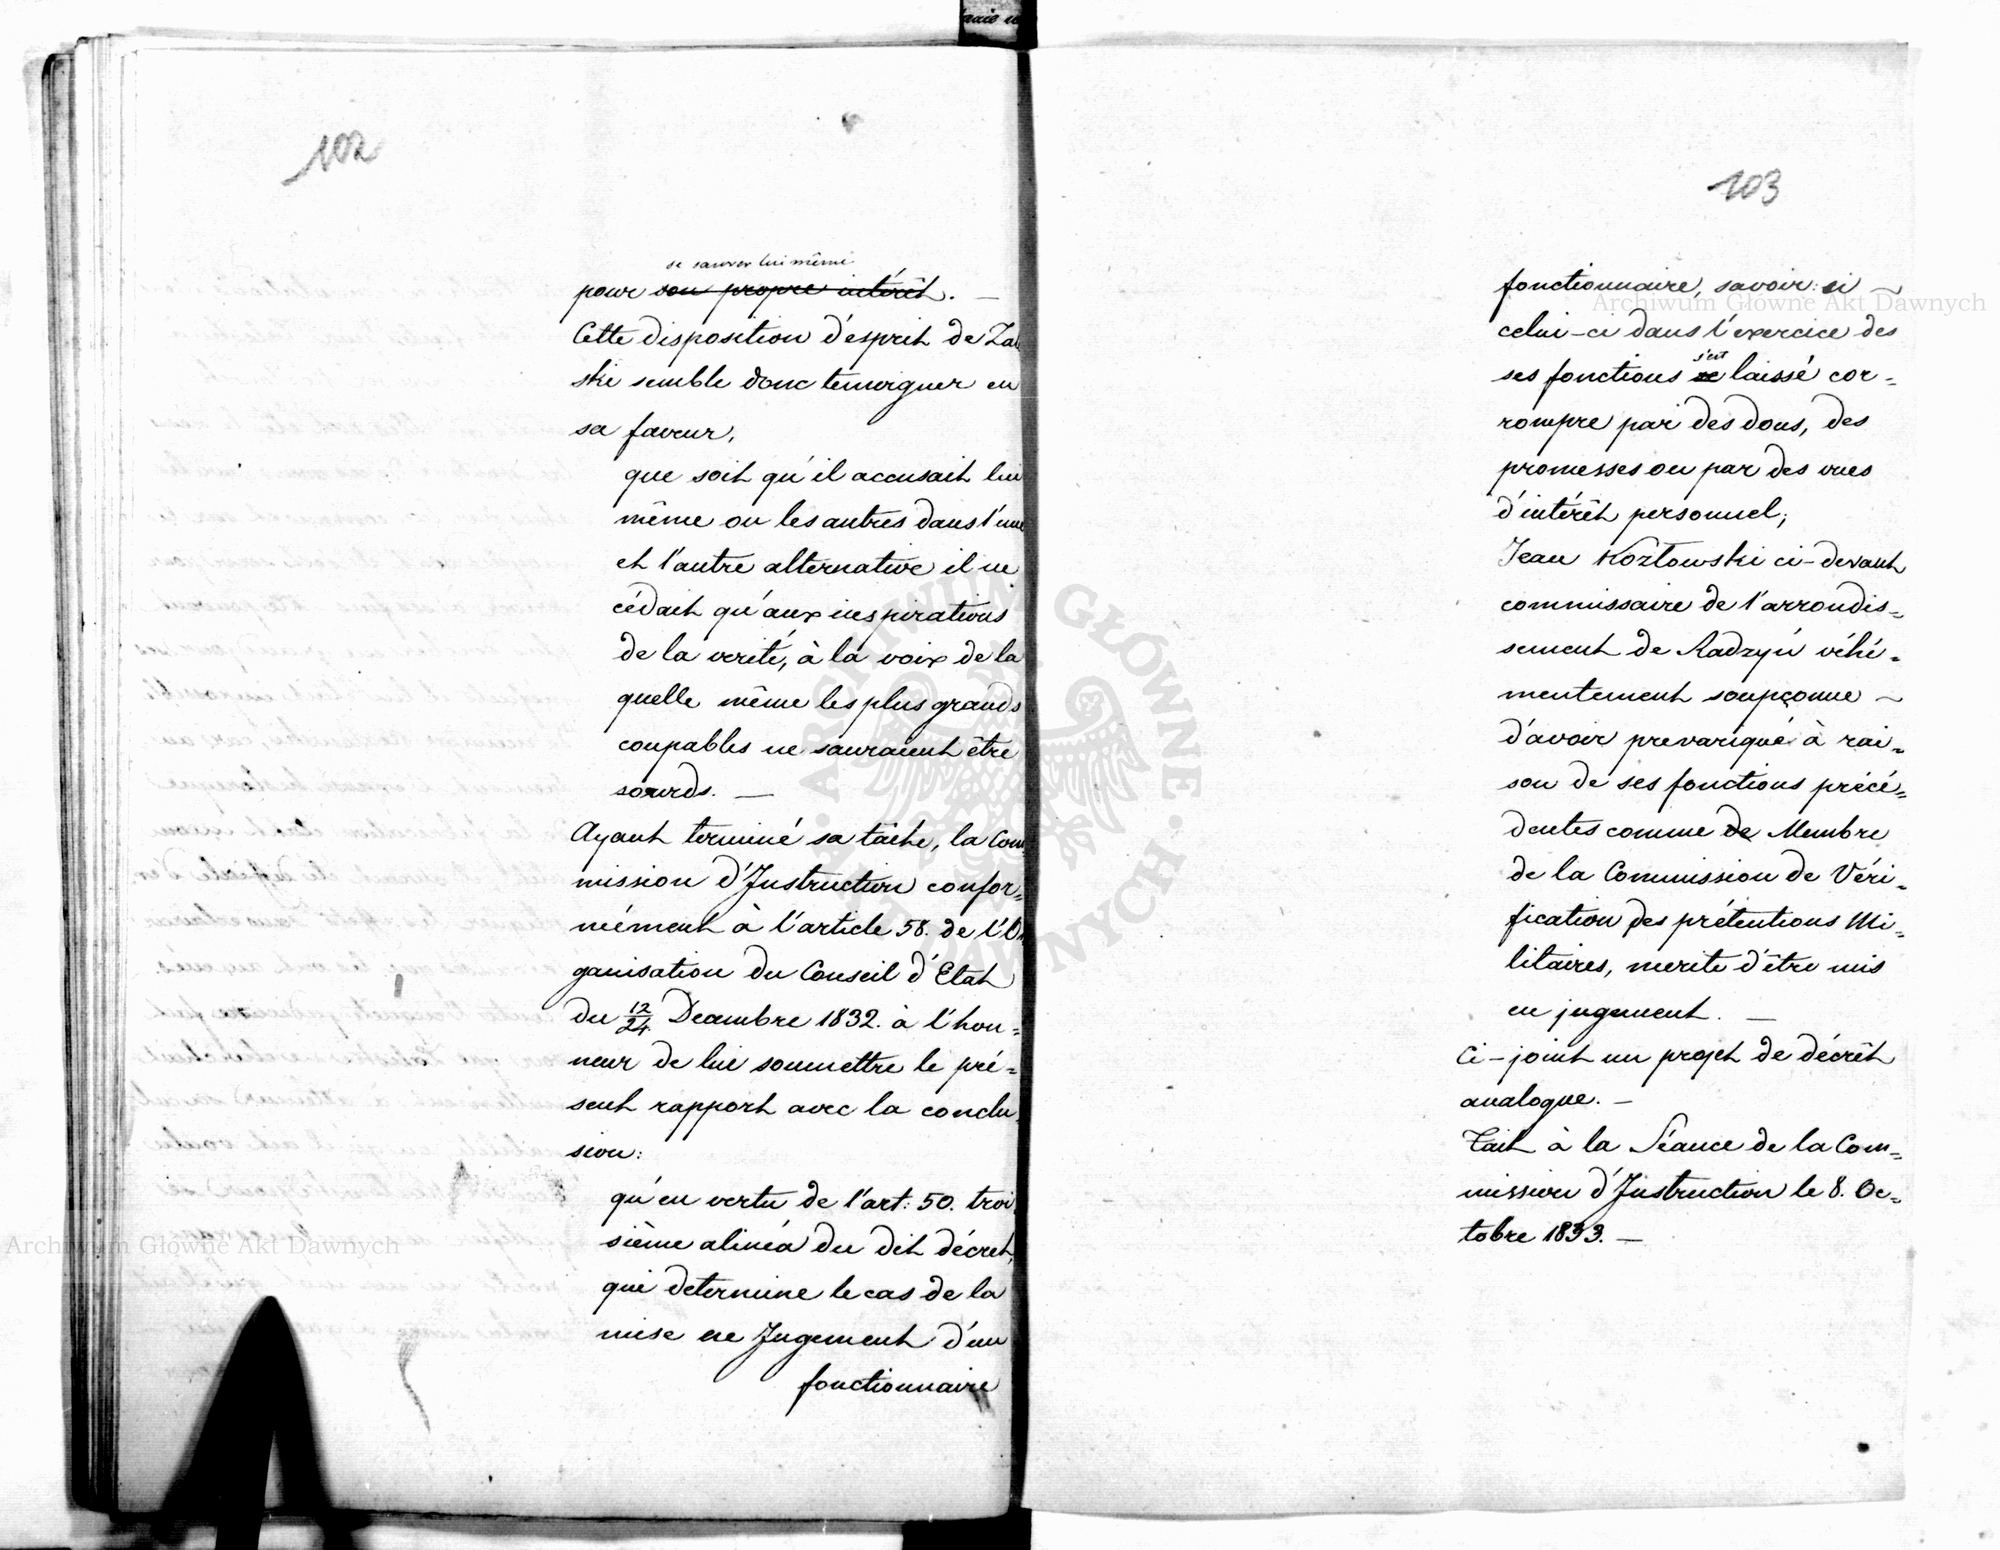 102
se sauver lui même
pour son propre intérêt. —
Cette disposition d'esprit de Zal
ski semble donc temoigner en
sa faveur,
que soit qu'il accusait lui
même ou les autres dans l'une
et l'autre alternative il ne
cédait qu'aux inspirations
de la verité, à la voix de la
quelle même les plus grands
coupables ne sauraient être
sourds. —
Ayant terminé sa tâche, la Com
mission d'Instruction confor=
mément à l'article 58. de l'Or
ganisation du Conseil d'Etat
du 12/24 Decembre 1832. à l'hon=
neur de lui soumettre le pré=
sent rapport avec la conclu
sion:
qu'en vertu de l'art: 50. troi
sième alinéa du dit décret,
qui determine le cas de la
mise en Jugement d'un
fonctionnaire
103
fonctionnaire, savoir: si ~
celui-ci dans l'exercice des
s'est
ses fonctions se laissé cor=
rompre par des dons, des
promesses ou par des vues
d'intérêt personnel;
Jean Kozłowski ci-devant
commissaire de l'arrondis=
sement de Radzyń véhé=
mentement soupçonne ~
d'avoir prevariqué à rai=
son de ses fonctions précé=
dentes comme de Membre
de la Commission de Véri=
fication des prétentions Mi=
litaires, merite d'être mis
en jugement. —
Ci-joint un projet de décrèt
analogue. —
Fait à la Séance de la Com=
mission d'Instruction le 8. Oc=
tobre 1833. —
Archiwum Główne Akt Dawnych
Archiwum Główne Akt Dawnych
ARCHIWUM GŁÓWNE AKT DAWNYCH